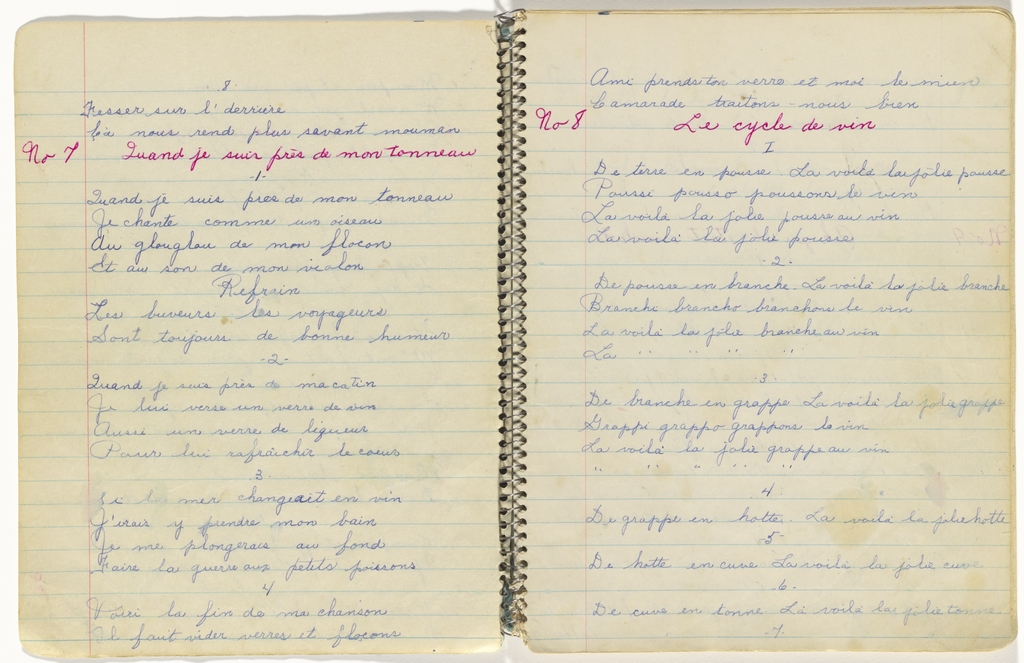 8
Fesser sur l'derriere
Ca nous rend plus savant mouman
No 7 Quand je suis près de mon tonneau
-1-
Quand je suis pres de mon tonneau
Je chante comme un oiseau
Au glouglou de mon flocon
Et au son de mon violon
Refrain
Les buveurs les voyageurs
Sont toujours de bonne humeur
-2-
Quand je suis près de ma catin
Je lui verse un verre de vin
Aussi un verre de liqueur
Pour lui rafraichir le coeur
3
Si la mer changeait en vin
J'irais y prendre mon bain
Je me plongerais au fond
Faire la guerre aux petits poissons
4
Voici la fin de ma chanson
Il faut vider verres et flocons
Ami prends ton verre et moi le mien
Camarade traitons-nous bien
No 8 Le cycle de vin
I
De terre en pousse. La voilà la jolie pousse
Poussi pousso poussons le vin
La voilà la jolie pousse au vin
La voilà la jolie pousse
-2-
De pousse en branche. La voilà la jolie branche
Branchi brancho branchons le vin
La voilà la jolie branche au vin
La " " " "
-3-
De branche en grappe. La voilà la jolie grappe
Grappi grappo grappons le vin
La voilà la jolie grappe au vin
" " " " "
-4-
De grappe en hotte. La voilà la jolie hotte
-5-
De hotte en cuve La voilà la jolie cuve
-6-
De cuve en tonne La voilà la jolie tonne
-7-